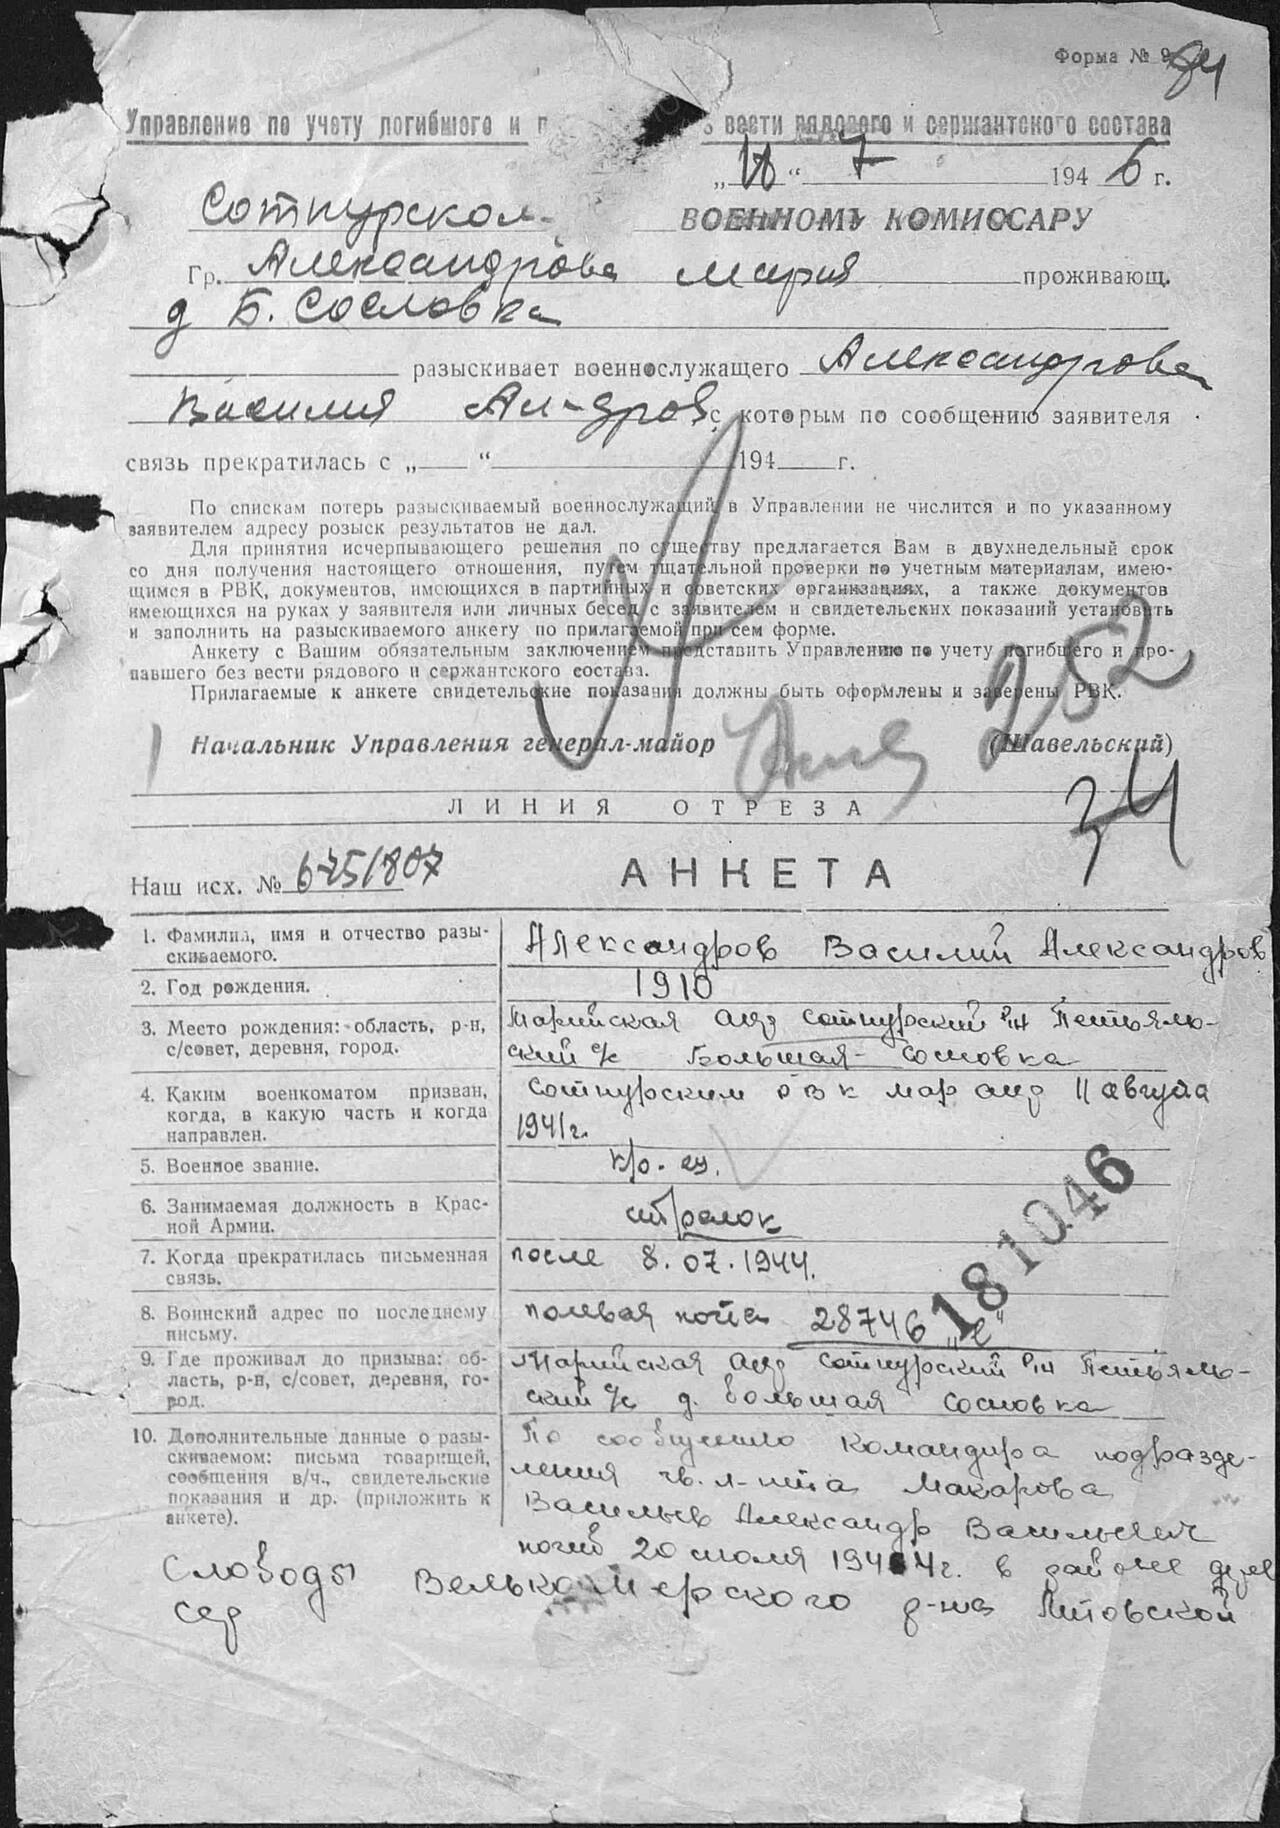 Форма № 9
Управление по учету погибшего и п вести рядового и сержантского состава
„18“ 7 1946 г.
Сотнурском ВОЕННОМУ КОМИССАРУ
Гр. Александрова Мария проживающ.
д Б. Сословка
разыскивает военнослужащего Александрова
Василия Ал-дров с которым по сообщению заявителя
связь прекратилась с „ “ 194 г.
По спискам потерь разыскиваемый военнослужащий в Управлении не числится и по указанному
заявителем адресу розыск результатов не дал.
Для принятия исчерпывающего решения по существу предлагается Вам в двухнедельный срок
со дня получения настоящего отношения, путем тщательной проверки по учетным материалам, имею-
щимся в РВК, документов, имеющихся в партийных и советских организациях, а также документов
имеющихся на руках у заявителя или личных бесед с заявителем и свидетельских показаний установить
и заполнить на разыскиваемого анкету по прилагаемой при сем форме.
Анкету с Вашим обязательным заключением представить Управлению по учету погибшего и про-
павшего без вести рядового и сержантского состава.
Прилагаемые к анкете свидетельские показания должны быть оформлены и заверены РВК.
252
Начальник Управления генерал-майор (Шавельский)
ЛИНИЯ ОТРЕЗА
34
Наш исх. № 675/807
АНКЕТА
1. Фамилия, имя и отчество разы-
скиваемого.
Александров Василий Александров
2. Год рождения.
1910
3. Место рождения: область, р-н,
с/совет, деревня, город.
Марийская Сотнурский р/н Петъяль-
ский с/с Большая-Сосновка
4. Каким военкоматом призван,
когда, в какую часть и когда
направлен.
Сотнурским РВК мар 11 августа
1941г.
5. Военное звание.
кр-ец.
6. Занимаемая должность в Крас-
ной Армии.
стрелок
7. Когда прекратилась письменная
связь.
после 8.07.1944.
8. Воинский адрес по последнему
письму.
полевая почта 28746 „е“
181046
9. Где проживал до призыва: об-
ласть, р-н, с/совет, деревня, го-
род.
Марийская Сотнурский р/н Петъяль-
ский с/с д. Большая Сосновка
10. Дополнительные данные о разы-
скиваемом: письма товарищей,
сообщения в/ч., свидетельские
показания и др. (приложить к
анкете).
По сообщению командира подразде-
ления гв. л-нта Макарова
Васильев Александр Васильевич
погиб 20 июля 1944г. в районе дерев
Слободы Велькомерского р-на Литовской
сср